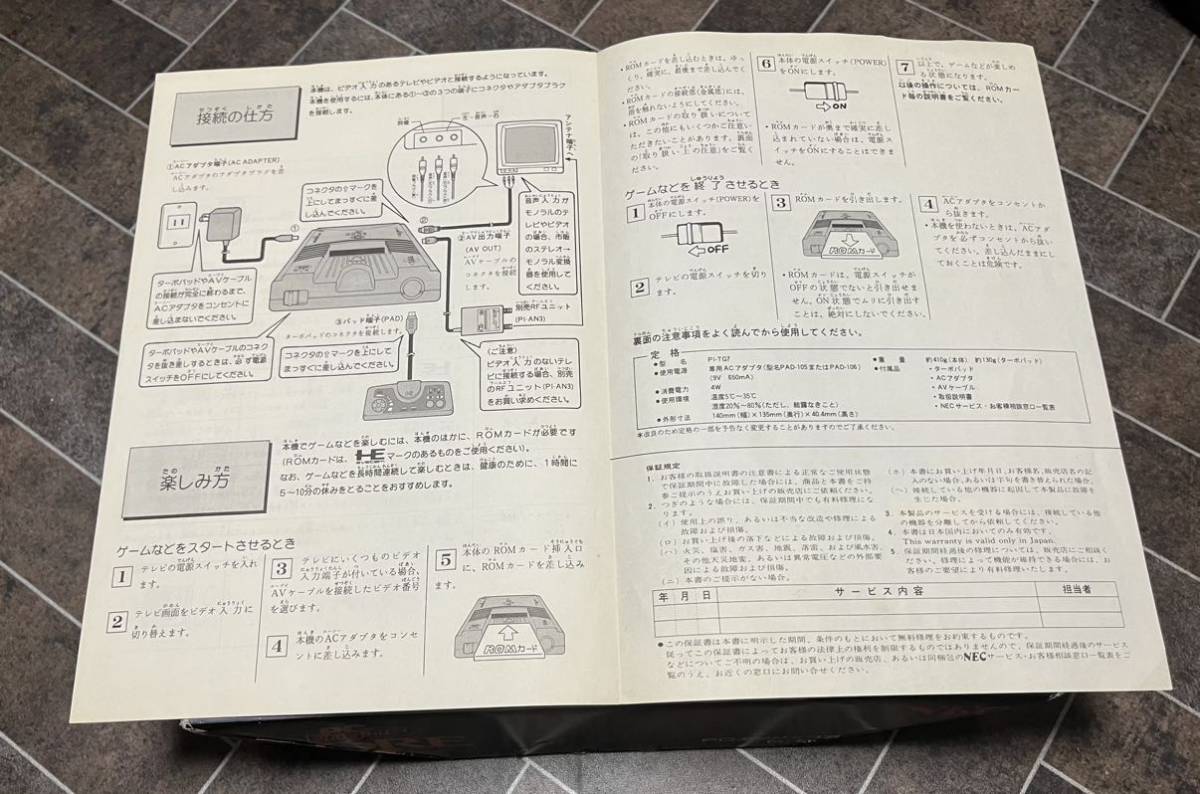 接続の仕方
本機は、ビデオ入力のあるテレビやビデオと接続するようになっています。
本機を使用するには、本体にある①〜③の3つの端子にコネクタやアダプタプラグ
を接続します。
①ACアダプタ端子(AC ADAPTER)
ACアダプタのアダプタプラグを差
し込みます。
コネクタの⇧マークを
上にしてまっすぐに差
し込んでください。
アンテナ端子へ
①
②
②AV出力端子
(AV OUT)
AVケーブルの
コネクタを接続
します。
音声入力が
モノラルのテ
レビやビデオ
の場合、市販
のステレオ→
モノラル変換
器を使用して
ください。
ターボパッドやAVケーブル
の接続が完全に終わるまで、
ACアダプタをコンセントに
差し込まないでください。
別売RFユニット
(PI-AN3)
③パッド端子(PAD)
ターボパッドのコネクタを接続します。
ターボパッドやAVケーブルのコネク
タを抜き差しするときは、必ず電源
スイッチをOFFにしてください。
コネクタの⇧マークを上にして
まっすぐに差し込んでください。
(ご注意)
ビデオ入力のないテレ
ビに接続する場合、別売
のRFユニット(PI-AN3)
をお買い求めください。
楽しみ方
本機でゲームなどを楽しむには、本機のほかに、ROMカードが必要です
(ROMカードは、HEマークのあるものをご使用ください)。
なお、ゲームなどを長時間連続して楽しむときは、健康のために、1時間に
5〜10分の休みをとることをおすすめします。
ゲームなどをスタートさせるとき
1 テレビの電源スイッチを入れ
ます。
2 テレビ画面をビデオ入力に
切り替えます。
3 テレビにいくつものビデオ
入力端子が付いている場合、
AVケーブルを接続したビデオ番号
を選びます。
4 本機のACアダプタをコンセ
ントに差し込みます。
5 本体のROMカード挿入口
に、ROMカードを差し込み
ます。
ROMカード
・ROMカードを差し込むときは、ゆっ
くり、確実に、最後まで差し込んでく
ださい。
・ROMカードの接続部(金属部)には、
指を触れないようにしてください。
・ROMカードの取り扱いについて
は、この他にもいくつかご注意い
ただきたいことがあります。裏面
の「取り扱い上の注意」をご覧く
ださい。
6 本体の電源スイッチ(POWER)
をONにします。
⇨ON
・ROMカードが奥まで確実に差し
込まれていない場合は、電源ス
イッチをONにすることはできま
せん。
7 以上で、ゲームなどが楽しめ
る状態になります。
以後の操作については、ROMカー
ド毎の説明書をご覧ください。
ゲームなどを終了させるとき
1 本体の電源スイッチ(POWER)を
OFFにします。
⇦OFF
2 テレビの電源スイッチを切り
ます。
3 ROMカードを引き出します。
ROMカード
・ROMカードは、電源スイッチが
OFFの状態でないと引き出せま
せん。ON状態でムリに引き出す
ことは、絶対にしないでください。
4 ACアダプタをコンセントか
ら抜きます。
・本機を使わないときは、「ACアダ
プタを必ずコンセントから抜いて
ください。差し込んだままにして
おくことは危険です。
裏面の注意事項をよく読んでから使用してください。
定格
●型名 PI-TG7
●使用電源 専用ACアダプタ(型名PAD-105またはPAD-106)
(9V 650mA)
●消費電力 4W
●使用環境 温度5℃〜35℃
湿度20%〜80%(ただし、結露なきこと)
●外形寸法 140mm(幅)×135mm(奥行)×40.4mm(高さ)
●重量 約410g(本体) 約130g(ターボパッド)
●付属品 ・ターボパッド
・ACアダプタ
・AVケーブル
・取扱説明書
・NECサービス・お客様相談窓口一覧表
*改良のため定格の一部を予告なく変更することがありますのでご了承ください。
保証規定
1. お客様の取扱説明書の注意書による正常なご使用状態
で保証期間中に故障した場合には、商品と本書をご持
参ご提示のうえお買い上げの販売店にご依頼ください。
2. つぎのような場合には、保証期間中でも有料修理にな
ります。
(イ) 使用上の誤り、あるいは不当な改造や修理による
故障および損傷。
(ロ) お買い上げ後の落下などによる故障および損傷。
(ハ) 火災、塩害、ガス害、地震、落雷、および風水害、
その他天災地変、あるいは異常電圧などの外部要
因による故障および損傷。
(ニ) 本書のご提示がない場合。
(ホ) 本書にお買い上げ年月日、お客様名、販売店名の記
入のない場合、あるいは字句を書き替えられた場合。
(ヘ) 接続している他の機器に起因して本製品に故障を
生じた場合。
3. 本製品のサービスを受ける場合には、接続している他
の機器を分離してから依頼してください。
4. 本書は日本国内においてのみ有効です。
This warranty is valid only in Japan.
5. 保証期間経過後の修理については、販売店にご相談く
ださい。修理によって機能が維持できる場合には、お
客様のご要望により有料修理いたします。
年 月 日 サービス内容 担当者
●この保証書は本書に明示した期間、条件のもとにおいて無料修理をお約束するものです。
従ってこの保証書によってお客様の法律上の権利を制限するものではありませんので、保証期間経過後のサービス
などについてご不明の場合は、お買い上げの販売店、あるいは同梱包のNECサービス・お客様相談窓口一覧表をご
覧のうえ、お近くの窓口にお問い合せください。